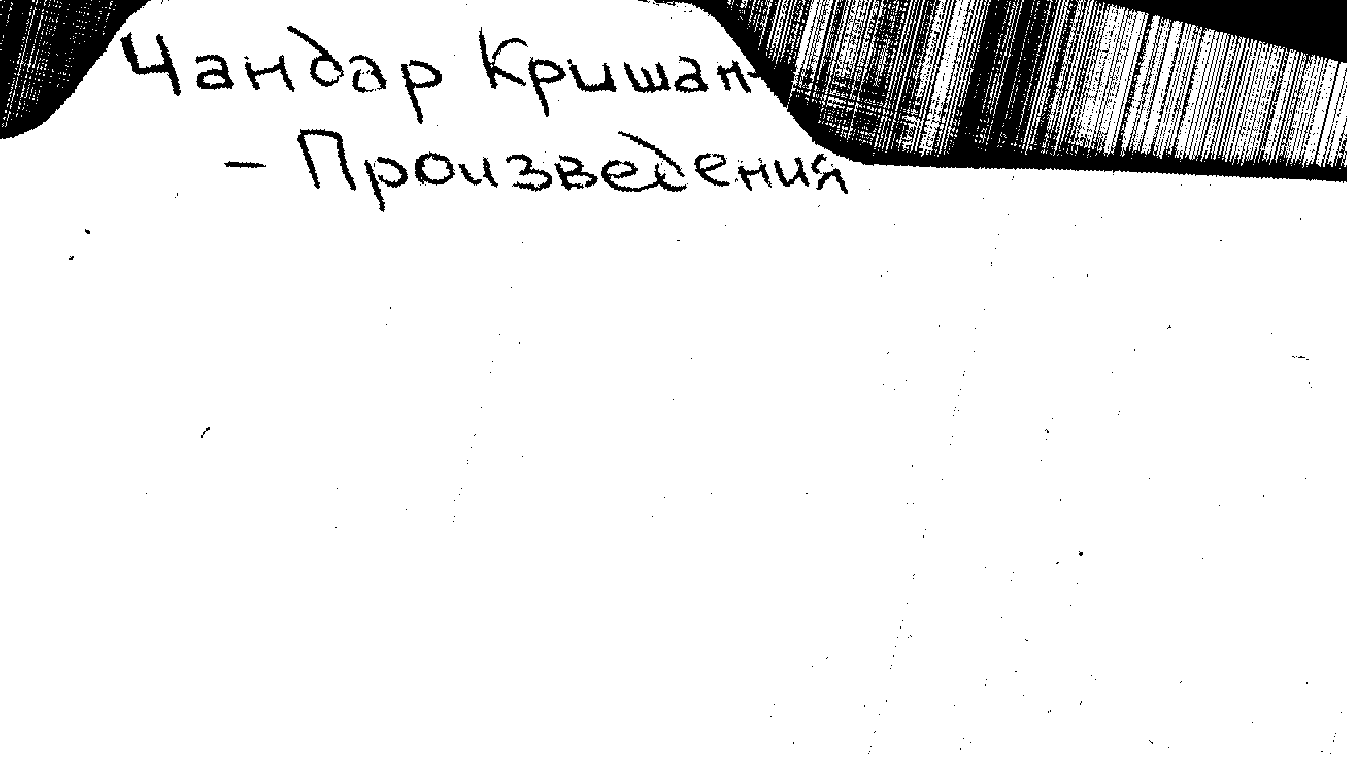 Чандар Кришан-
- Произведения